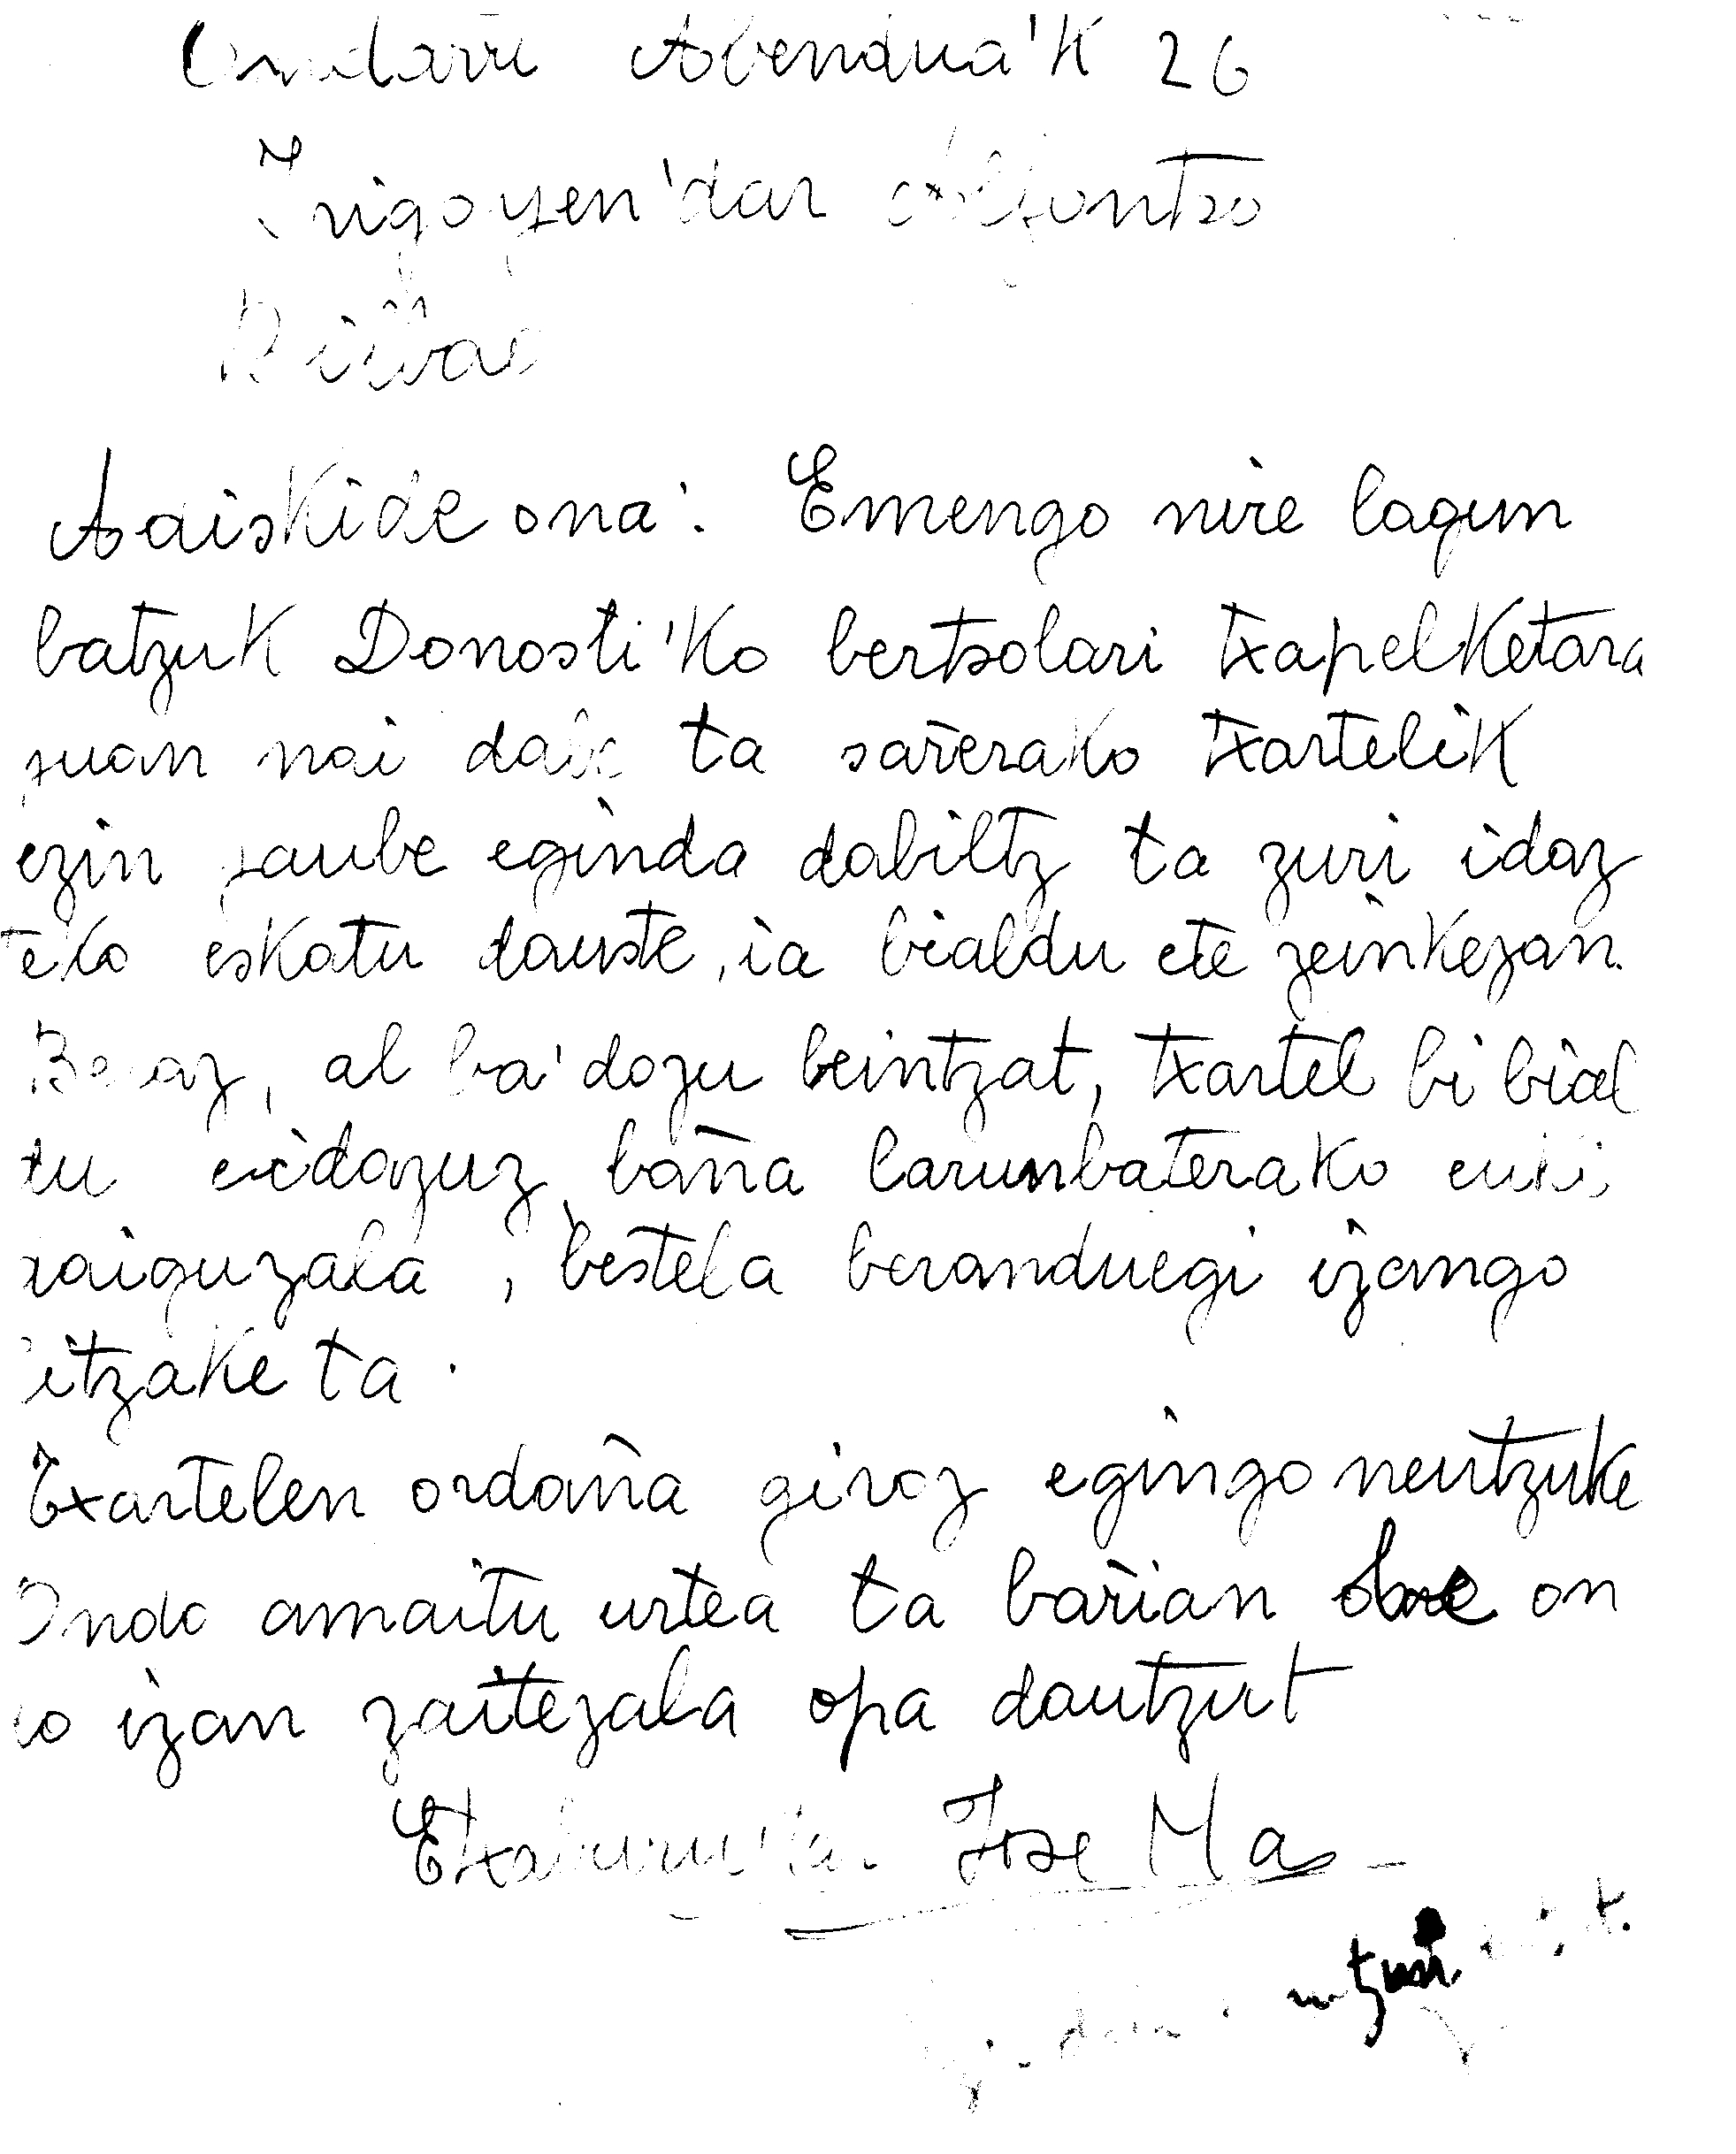 Ondarru Abendua'k 26
Irigoyen'dar Alfontso
Bilbao
Adiskide ona: Emengo nire lagun
batzuk Donosti'ko bertsolari txapelketara
juan nai dabe ta sar̃erako txartelik
ezin jaube eginda dabiltz ta zuri idaz
teko eskatu dauste, ia bialdu ete zeinkezan.
Beraz, al ba'dozu beintzat, txartel bi bial
du eidazuz, baña larunbaterako euki
daiguzala, bestela beranduegi izango
litzake ta.
Txartelen ordaña giroz egingo neutzuke
Ondo amaitu urtea ta bar̃ian obe on
to izan zaitezala opa dautzut
Jose Ma